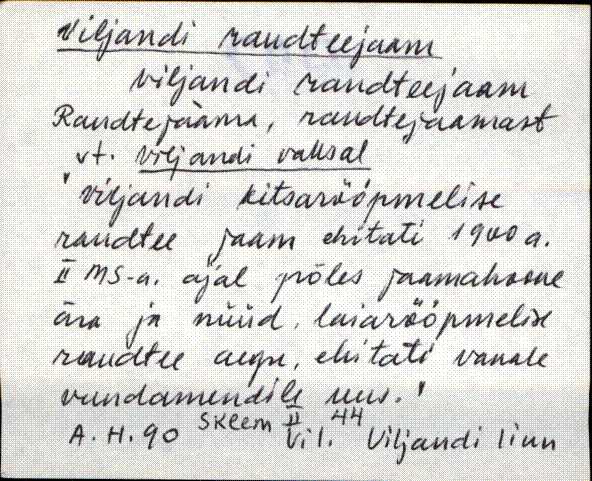 Viljandi raudteejaam
Viljandi raudteejaam
Raudtejàama, raudtejaamast
vt. Viljandi vaksal
"Viljandi kitsarööpmelise
raudtee jaam ehitati 1900 a.
II MS-a. ajal põles jaamahoone
ära ja nüüd, laiarööpmelise
raudtee aegu, ehitati vanale
vundamendile uus."
A.H.90 Skeem II Vil. 44 Viljandi linn